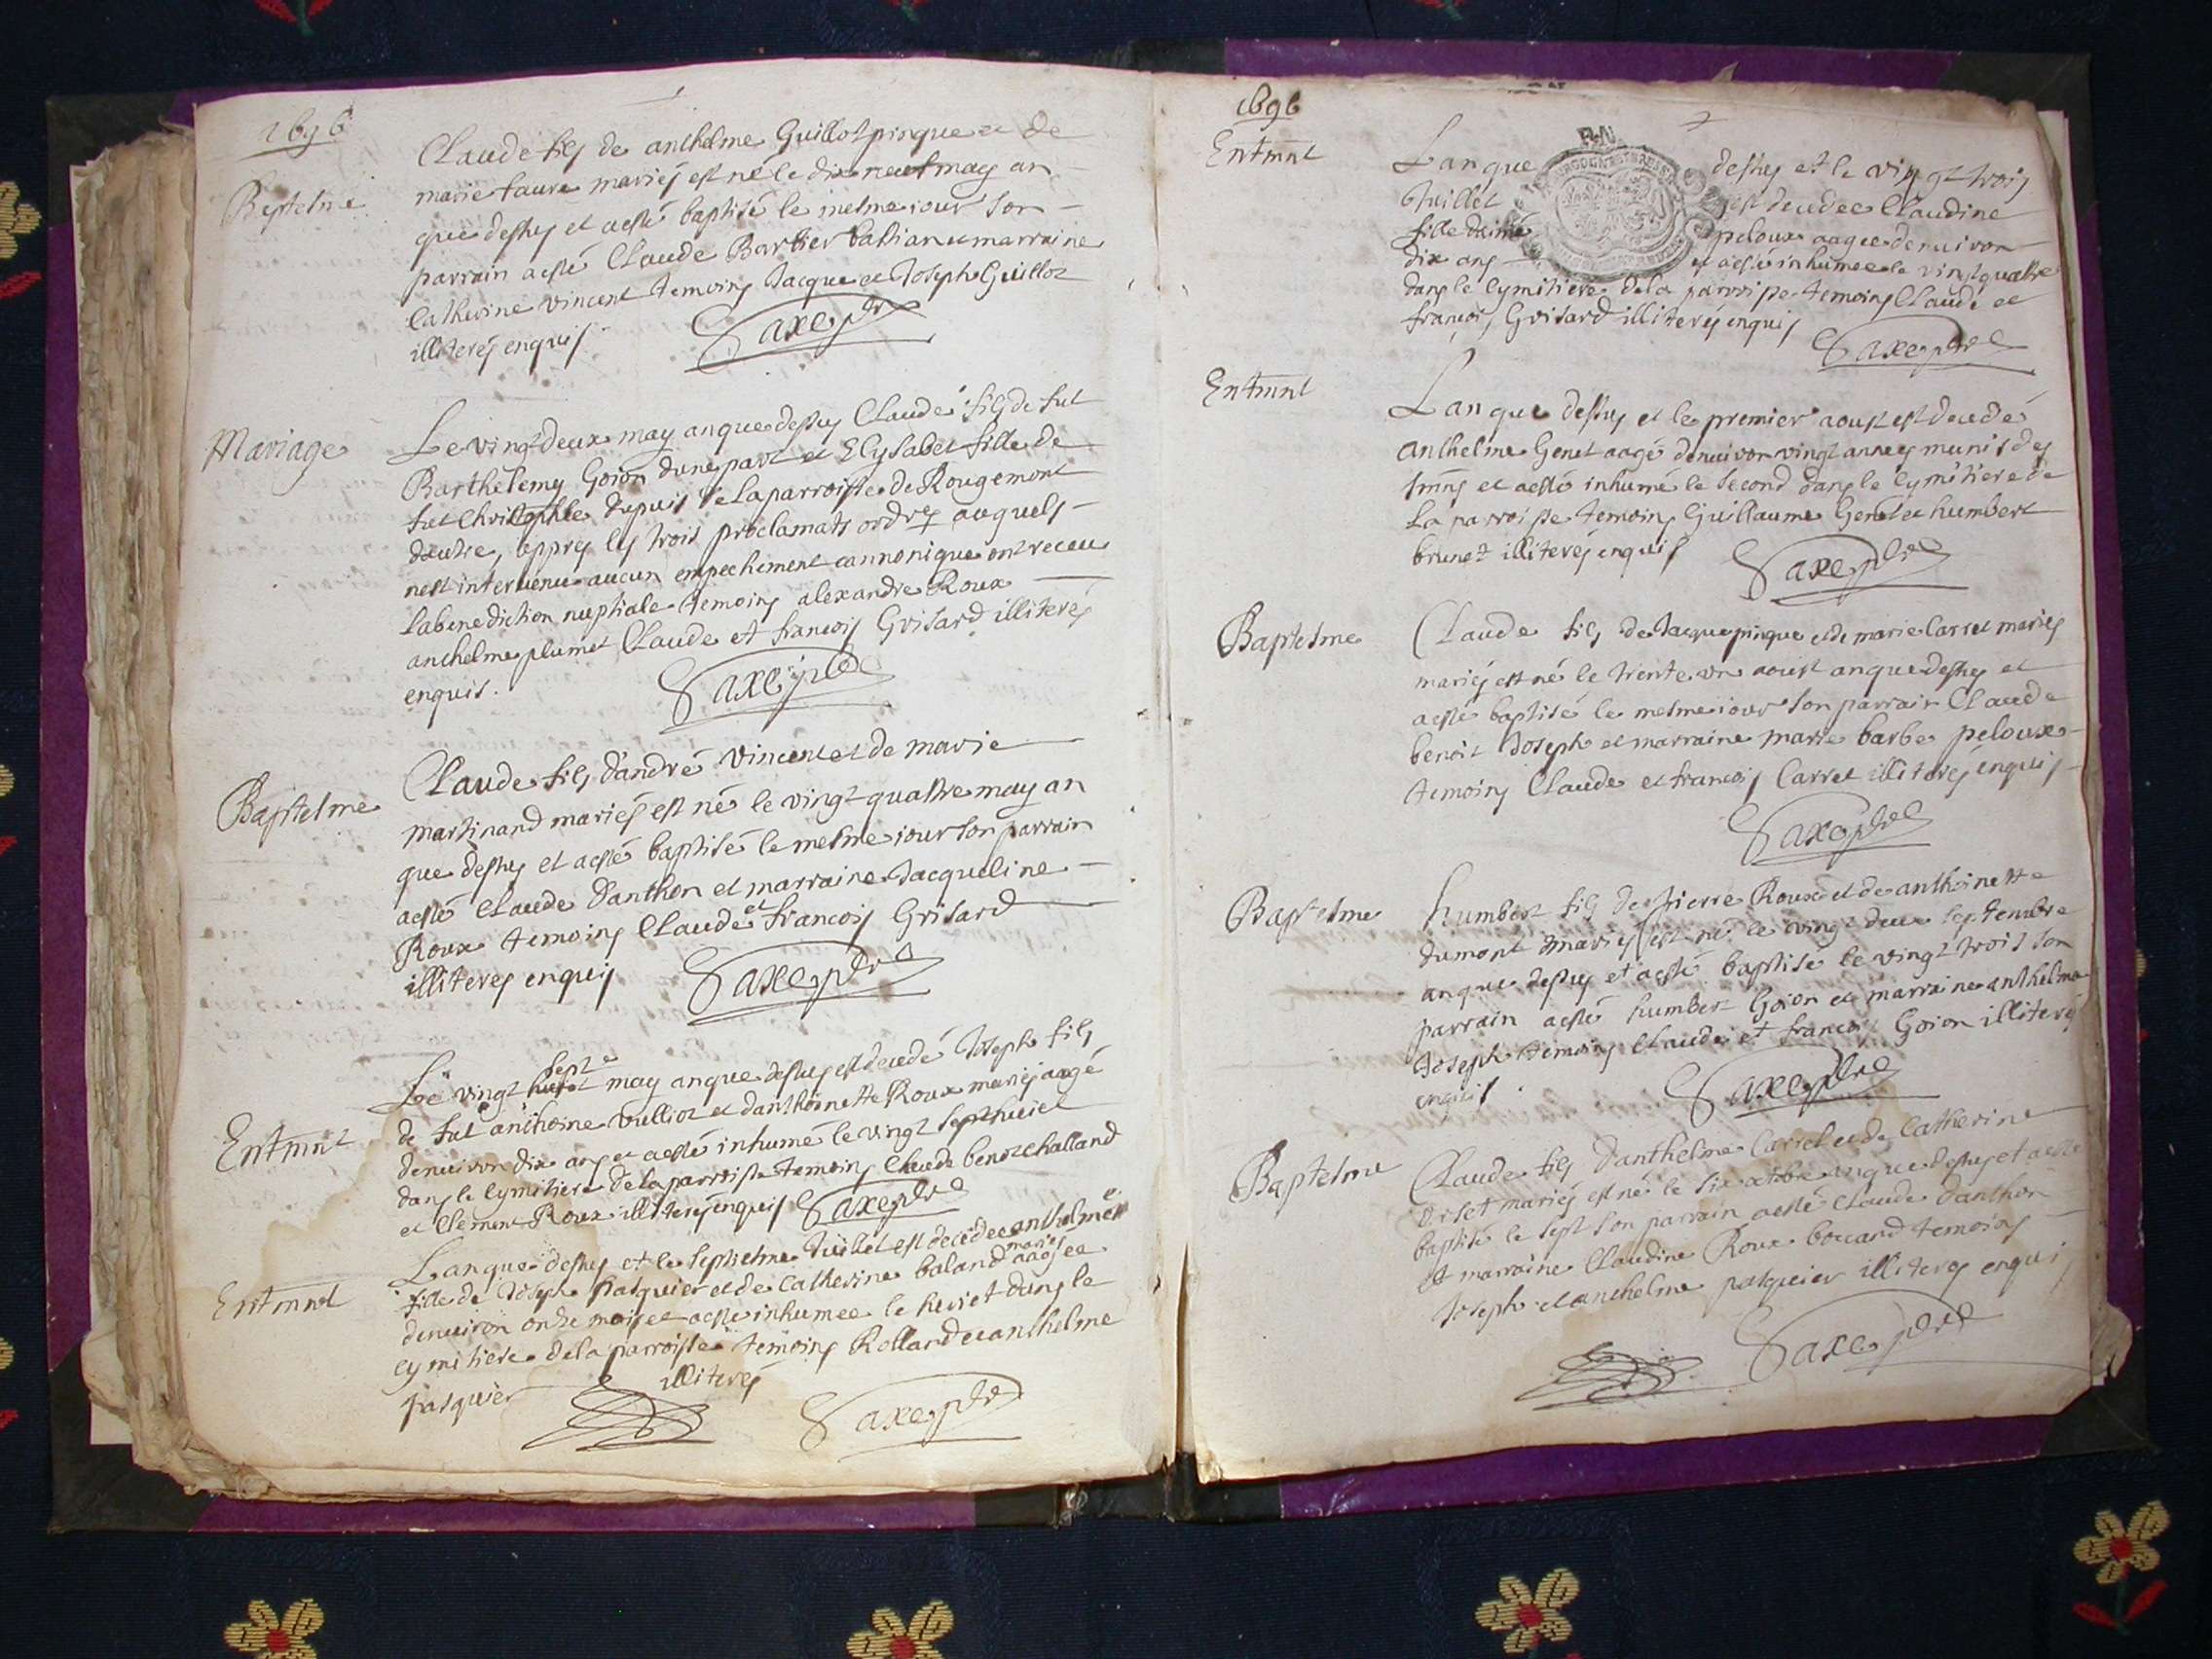 1696
Baptelme
Claude fils de anthelme Guillot pinque et de
marie faure mariés est né le dix neuf may an
que dessus et a esté baptisé le mesme iour son
parrain a esté Claude Barbier bastian et marraine
Catherine vincent temoins Jacque et Joseph Guillot
illiterés enquis
Saxe ptre
Mariage
Le vingt deux may an que dessus Claude fils de fut
Barthelemy Goion dune part et Elysabet fille de
fut Christophle dupuis de la parroisse de Rougemont
dautre, appres les trois proclamats ordres auquels
nest intervenu aucun empechement cannonique ont receu
la benediction nuptiale temoins alexandre Roux
anthelme plumet Claude et francois Grisard illiterés
enquis.
Saxe ptre
Baptelme
Claude fils dandré vincent et de marie
martinand mariés est né le vingt quattre may an
que dessus et a esté baptisé le mesme iour son parrain
a esté Claude danthon et marraine Jacqueline
Roux temoins Claude et francois Grisard
illiterés enquis
Saxe ptre
Entmnt
Le vingt sept may an que dessus est decedé Joseph fils
de fut anthoine vulliot et danthoinette Roux mariés aagé
denuiron dix ans et a esté inhumé le vingt huict
dans le cymitiere de la parroisse temoins Claude benoit challand
et Clement Roux illiterés enquis Saxe ptre
Entmnt
Lan que dessus et le septiesme Juillet est decedee anthelme
fille de Joseph pasquier et de Catherine baland mariés aagee
denuiron onze mois et a esté inhumee le huict dans le
cymitiere de la parroisse temoins Rolland et anthelme
pasquier illiterés
Saxe ptre
1696
Entmnt
Lan que dessus et le vingt trois
Juillet est decedee Claudine
fille daimé peloux aagee denuiron
dix ans et a esté inhumee le vingt quattre
dans le cymitiere de la parroisse temoins Claude et
francois Grisard illiterés enquis
Saxe ptre
Entmnt
Lan que dessus et le premier aoust est decedé
anthelme Genet aagé denuiron vingt annees munis des
smns et a esté inhumé le second dans le cymitiere de
la parroisse temoins Guillaume Genet et humbert
brunet illiterés enquis
Saxe ptre
Baptesme
Claude fils de Jacque pinque et de marie Carrel mariés
mariés est né le trente un aoust an que dessus et
a esté baptisé le mesme iour son parrain Claude
benoit Joseph et marraine marie barbe peloux
temoins Claude et francois Carrel illiterés enquis
Saxe ptre
Baptesme
humbert fils de pierre Roux et de anthoinette
dumont mariés est né le vingt deux septembre
an que dessus et a esté baptisé le vingt trois son
parrain a esté humbert Goion et marraine anthelma
Joseph temoins Claude et francois Goion illiterés
enquis
Saxe ptre
Baptesme
Claude fils danthelme Carrel et de Catherine
mariés est né le six octobre an que dessus et a esté
baptisé le sept son parrain a esté Claude danthon
et marraine Claudine Roux bouard temoins
Joseph et anthelme pasquier illiterés enquis
Saxe ptre